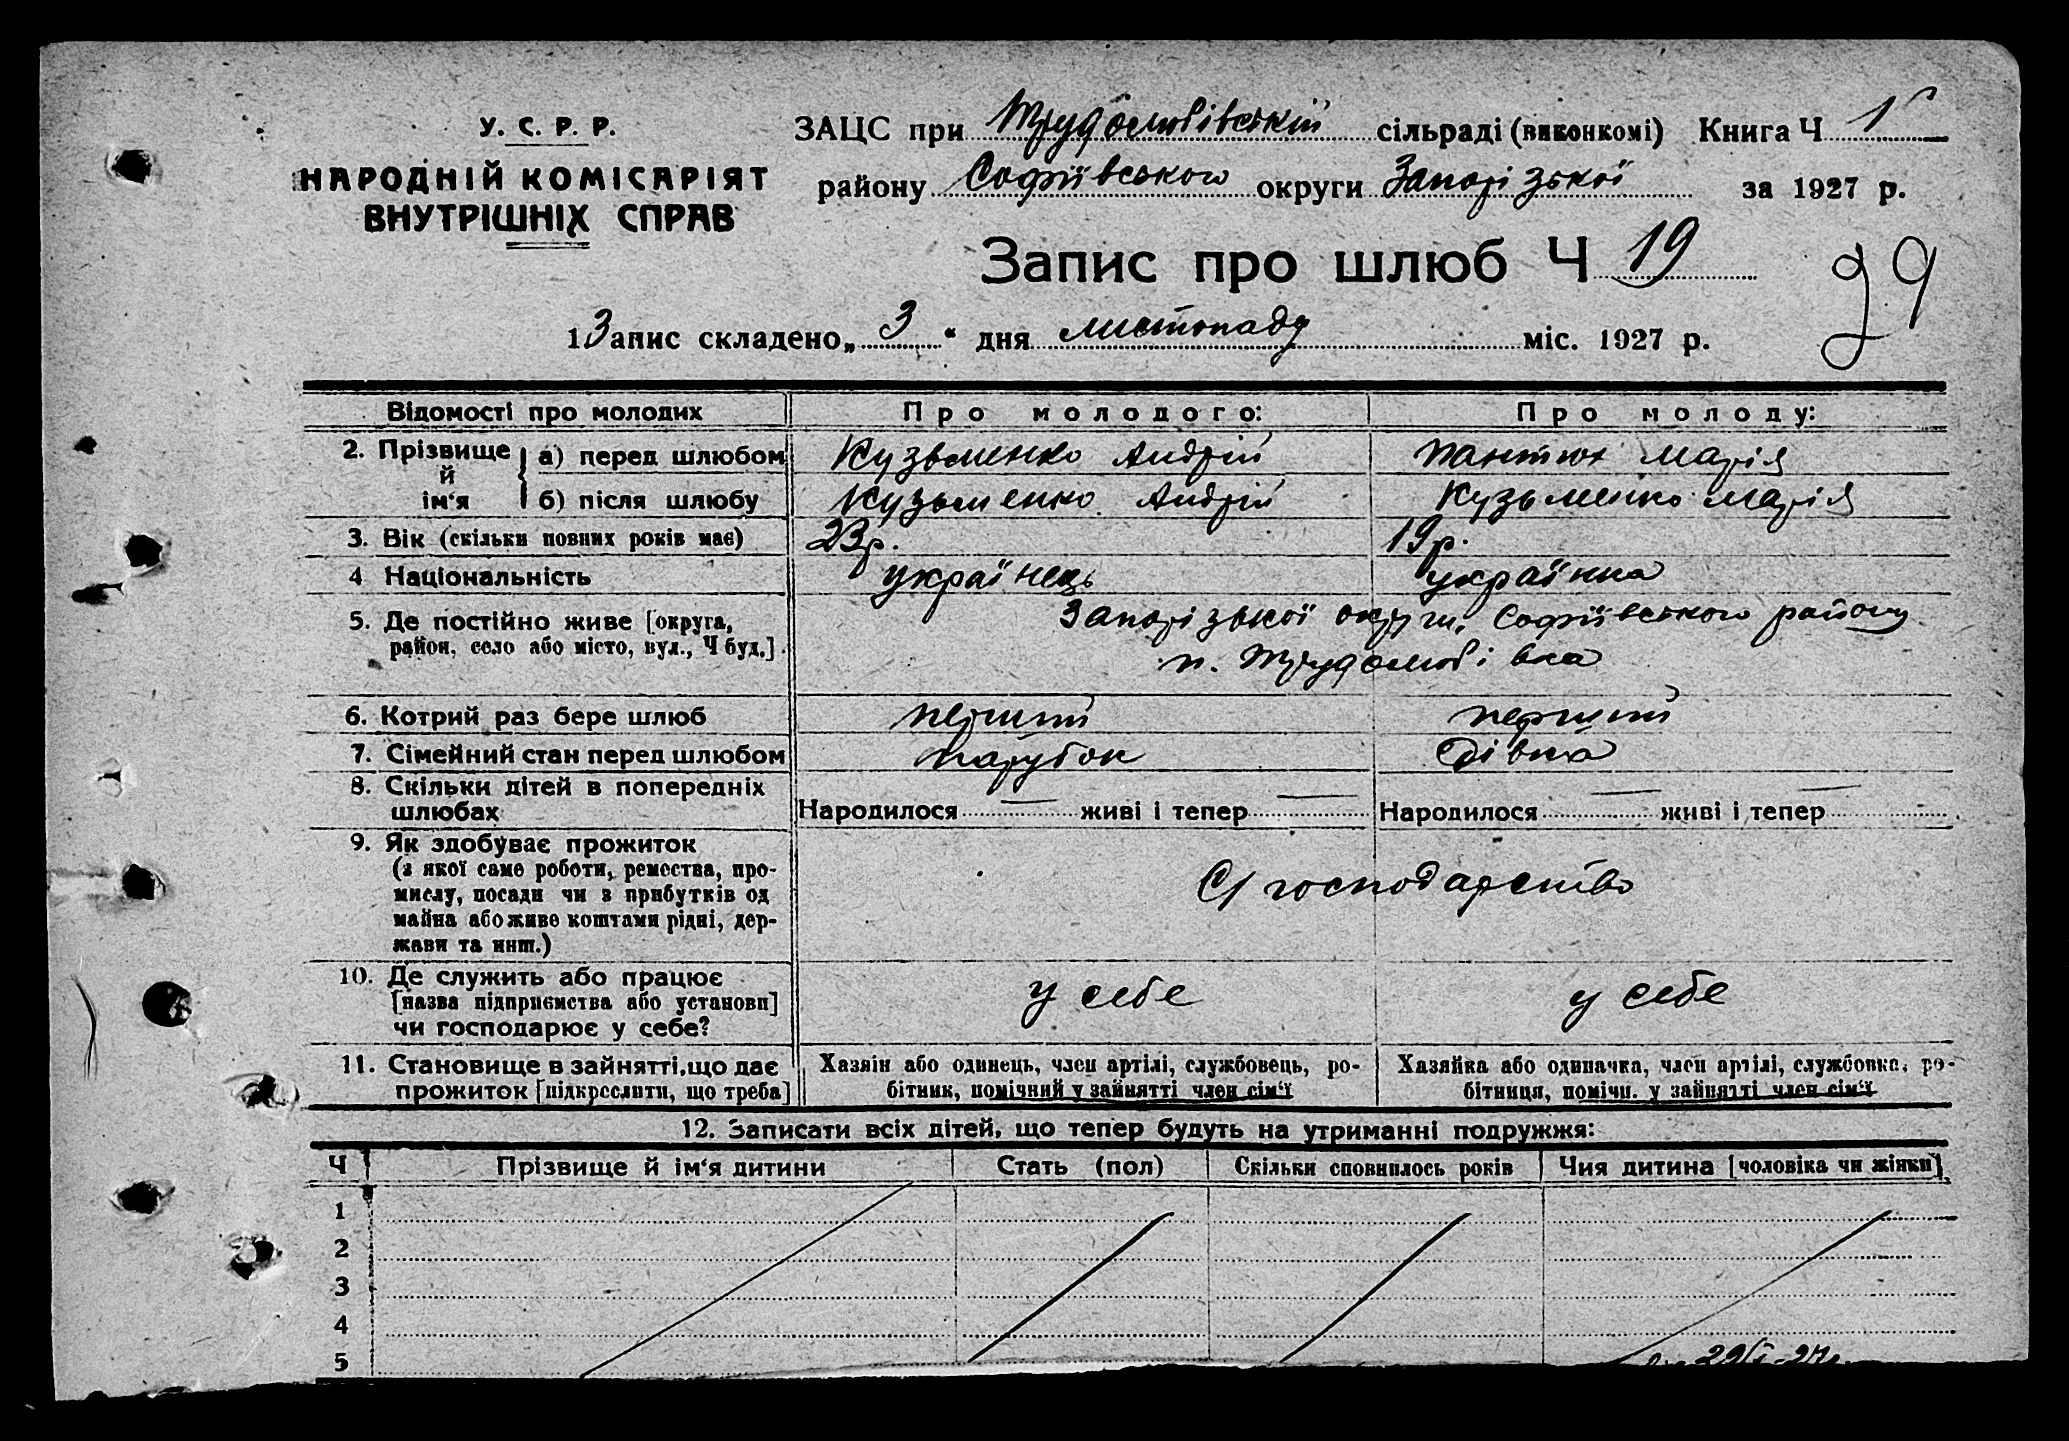 У. С. Р. Р.
НАРОДНІЙ КОМІСАРІЯТ
ВНУТРІШНІХ СПРАВ
ЗАЦС при Трудолюбівській сільраді (виконкомі) Книга Ч 1
району Софіївського округи Запорізької за 1927 р.
Запис про шлюб Ч 19
29
1 Запис складено „ 3 “ дня листопаду міс. 1927 р.
Відомості про молодих Про молодого: Про молоду:
2. Прізвище й ім‘я а) перед шлюбом Кузьменко Андрій Пантюх Марія
б) після шлюбу Кузьменко Андрій Кузьменко Марія
3. Вік (скільки повних років має) 23р. 19р.
4 Національність українець українка
5. Де постійно живе [округа, район, село або місто, вул., Ч буд.] Запорізької округи, Софіївського району
п. Трудолюбівка
6. Котрий раз бере шлюб перший перший
7. Сімейний стан перед шлюбом парубок дівка
8. Скільки дітей в попередніх шлюбах Народилося — живі і тепер — Народилося — живі і тепер —
9. Як здобуває прожиток
(з якої саме роботи, ремества, про-
мислу, посади чи з прибутків од
майна або живе коштами рідні, дер-
жави та инш.)
С/господарство
10. Де служить або працює
[назва підприємства або установи]
чи господарює у себе?
у себе у себе
11. Становище в зайнятті, що дає
прожиток [підкреслити, що треба]
Хазяїн або одинець, член артілі, службовець, ро-
бітник, помічний у зайнятті член сім‘ї
Хазяйка або одиначка, член артілі, службовка, ро-
бітниця, помічн. у зайнятті член сім‘ї
12. Записати всіх дітей, що тепер будуть на утриманні подружжя:
Ч Прізвище й ім‘я дитини Стать (пол) Скільки сповнилось років Чия дитина [чоловіка чи жінки]
1
2
3
4
5